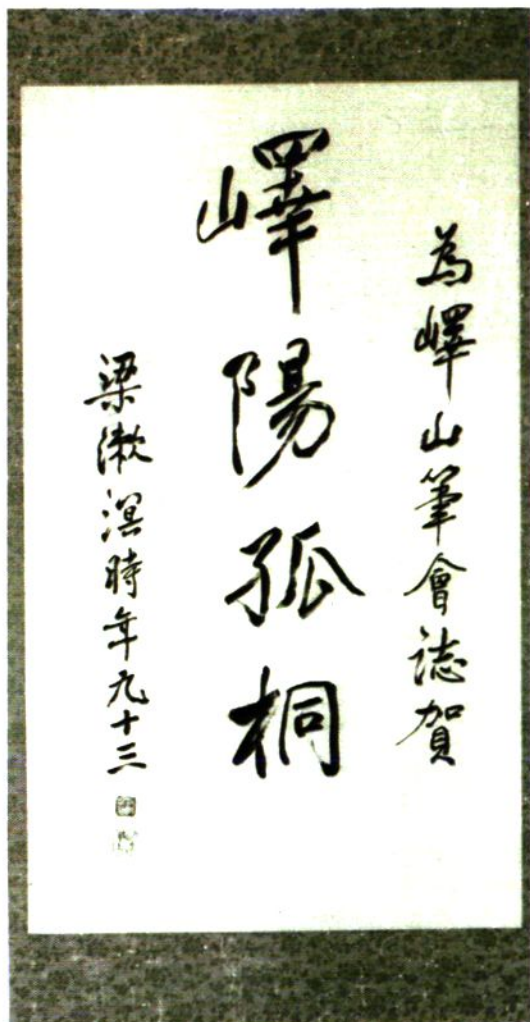 為嶧山筆會誌賀
嶧陽孤桐
梁漱溟時年九十三